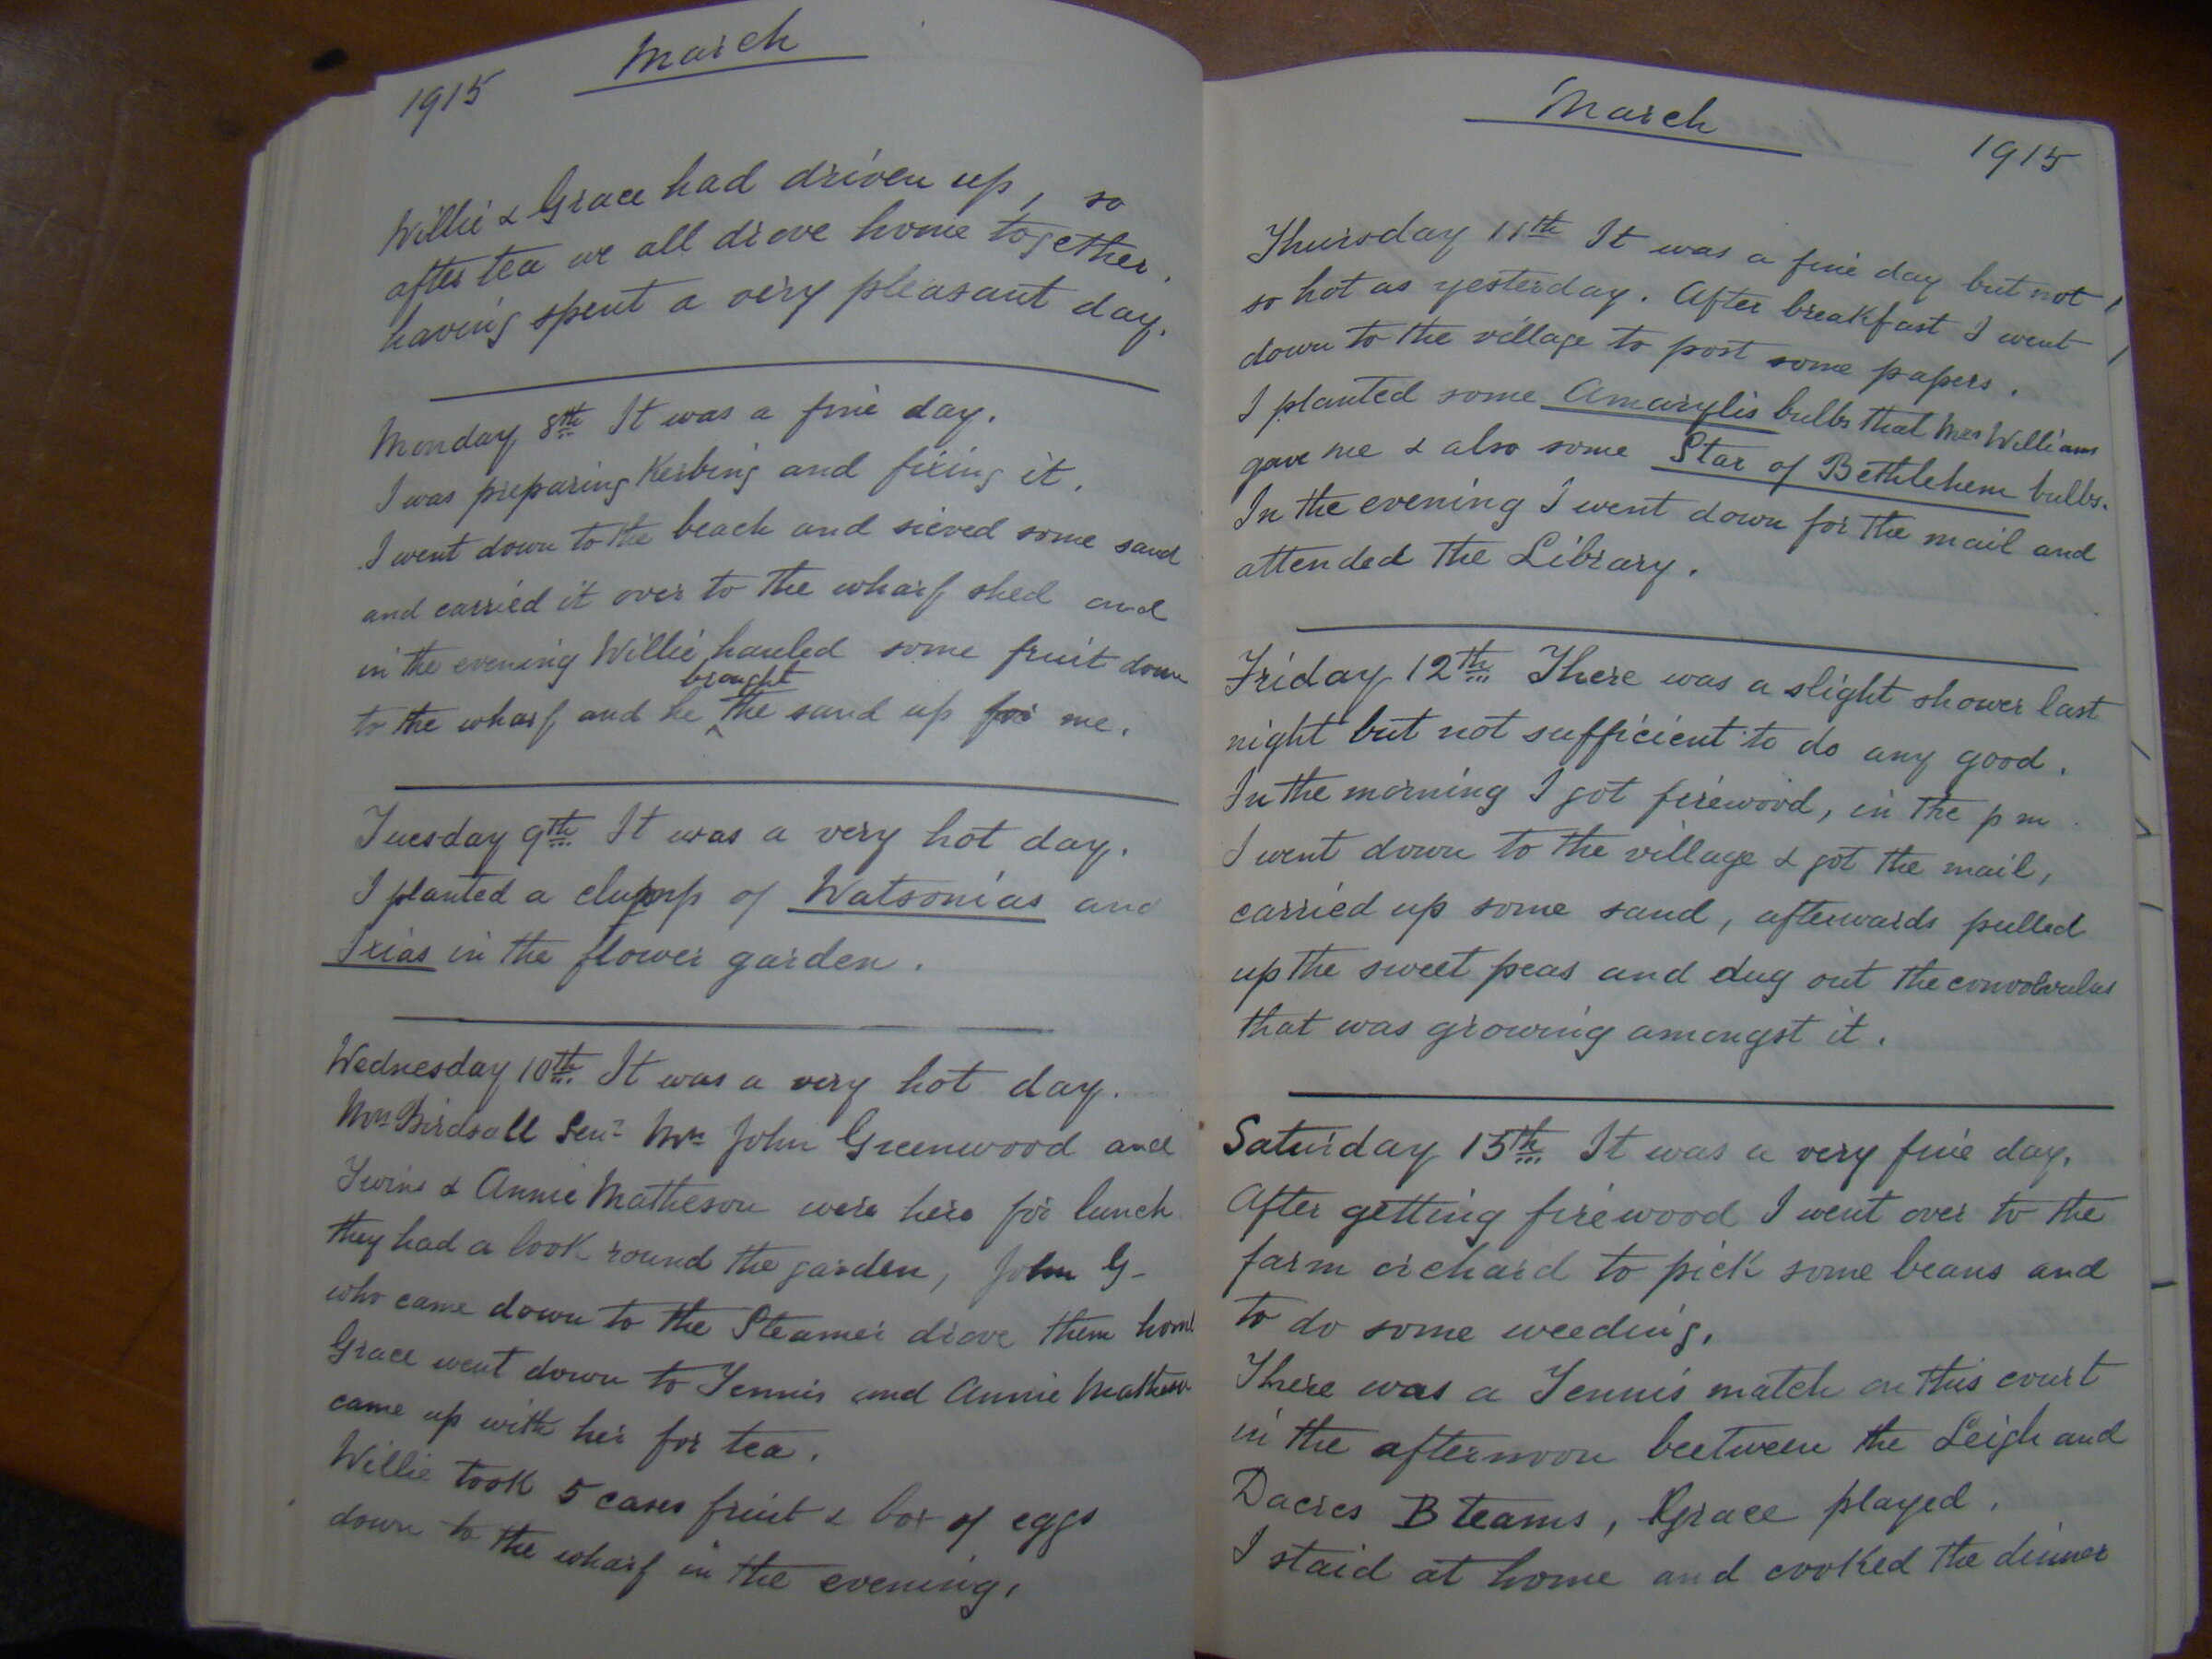 1915
March
Willie & Grace had driven up, so
after tea we all drove home together,
having spent a very pleasant day.
Monday 8th It was a fine day.
I was preparing Kerbing and fixing it.
I went down to the beach and sieved some sand
and carried it over to the wharf shed and
in the evening Willie hauled some fruit down
to the wharf and he brought the sand up for me.
Tuesday 9th It was a very hot day.
I planted a clump of Watsonias and
Ixias in the flower garden.
Wednesday 10th It was a very hot day.
Mrs Birdsall Senr Mrs John Greenwood and
Twins & Annie Matheson were here for lunch
they had a look round the garden, John G-
who came down to the Steamer drove them home
Grace went down to Tennis and Annie Matheson
came up with her for tea.
Willie took 5 cases fruit & box of eggs
down to the wharf in the evening.
March
1915
Thursday 11th It was a fine day but not
so hot as yesterday. After breakfast I went
down to the village to post some papers.
I planted some Amarylis bulbs that Mrs Williams
gave me & also some Star of Bethlehem bulbs.
In the evening I went down for the mail and
attended the Library.
Friday 12th There was a slight shower last
night but not sufficient to do any good.
In the morning I got firewood, in the pm
I went down to the village & got the mail,
carried up some sand, afterwards pulled
up the sweet peas and dug out the convolvulus
that was growing amongst it.
Saturday 13th It was a very fine day.
After getting firewood I went over to the
farm orchard to pick some beans and
to do some weeding.
There was a Tennis match on this court
in the afternoon beetween the Leigh and
Dacres B teams, Grace played.
I staid at home and cooked the dinner